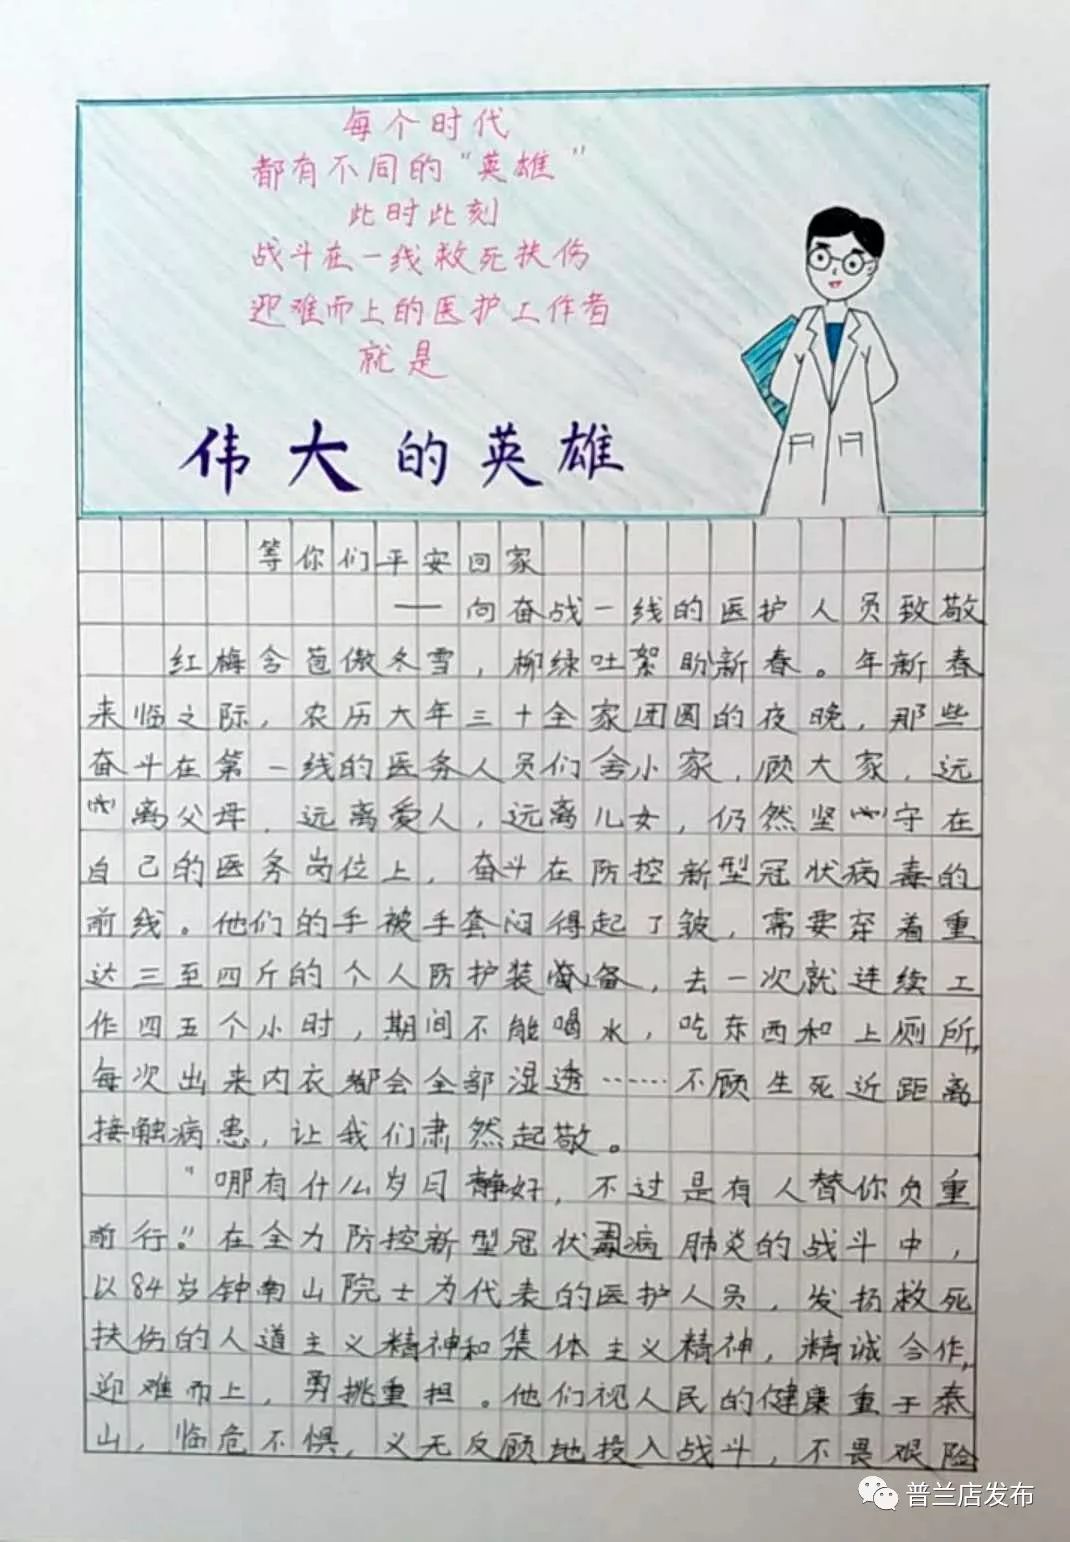 每个时代
都有不同的“英雄”
此时此刻
战斗在一线救死扶伤
迎难而上的医护工作者
就是
伟大的英雄
等你们平安回家
——向奋战一线的医护人员致敬
红梅含苞傲冬雪，柳绿吐絮盼新春。年新春
来临之际，农历大年三十全家团圆的夜晚，那些
奋斗在第一线的医务人员们舍小家，顾大家，远
离父母，远离爱人，远离儿女，仍然坚守在
自己的医务岗位上，奋斗在防控新型冠状病毒的
前线。他们的手被手套闷得起了皱，需要穿着重
达三至四斤的个人防护装备，去一次就连续工
作四五个小时，期间不能喝水，吃东西和上厕所，
每次出来内衣都会全部湿透……不顾生死近距离
接触病患，让我们肃然起敬。
“哪有什么岁月静好，不过是有人替你负重
前行”。在全力防控新型冠状病肺炎的战斗中，
以84岁钟南山院士为代表的医护人员，发扬救死
扶伤的人道主义精神和集体主义精神，精诚合作，
迎难而上，勇挑重担。他们视人民的健康重于泰
山，临危不惧，义无反顾地投入战斗，不畏艰险
普兰店发布